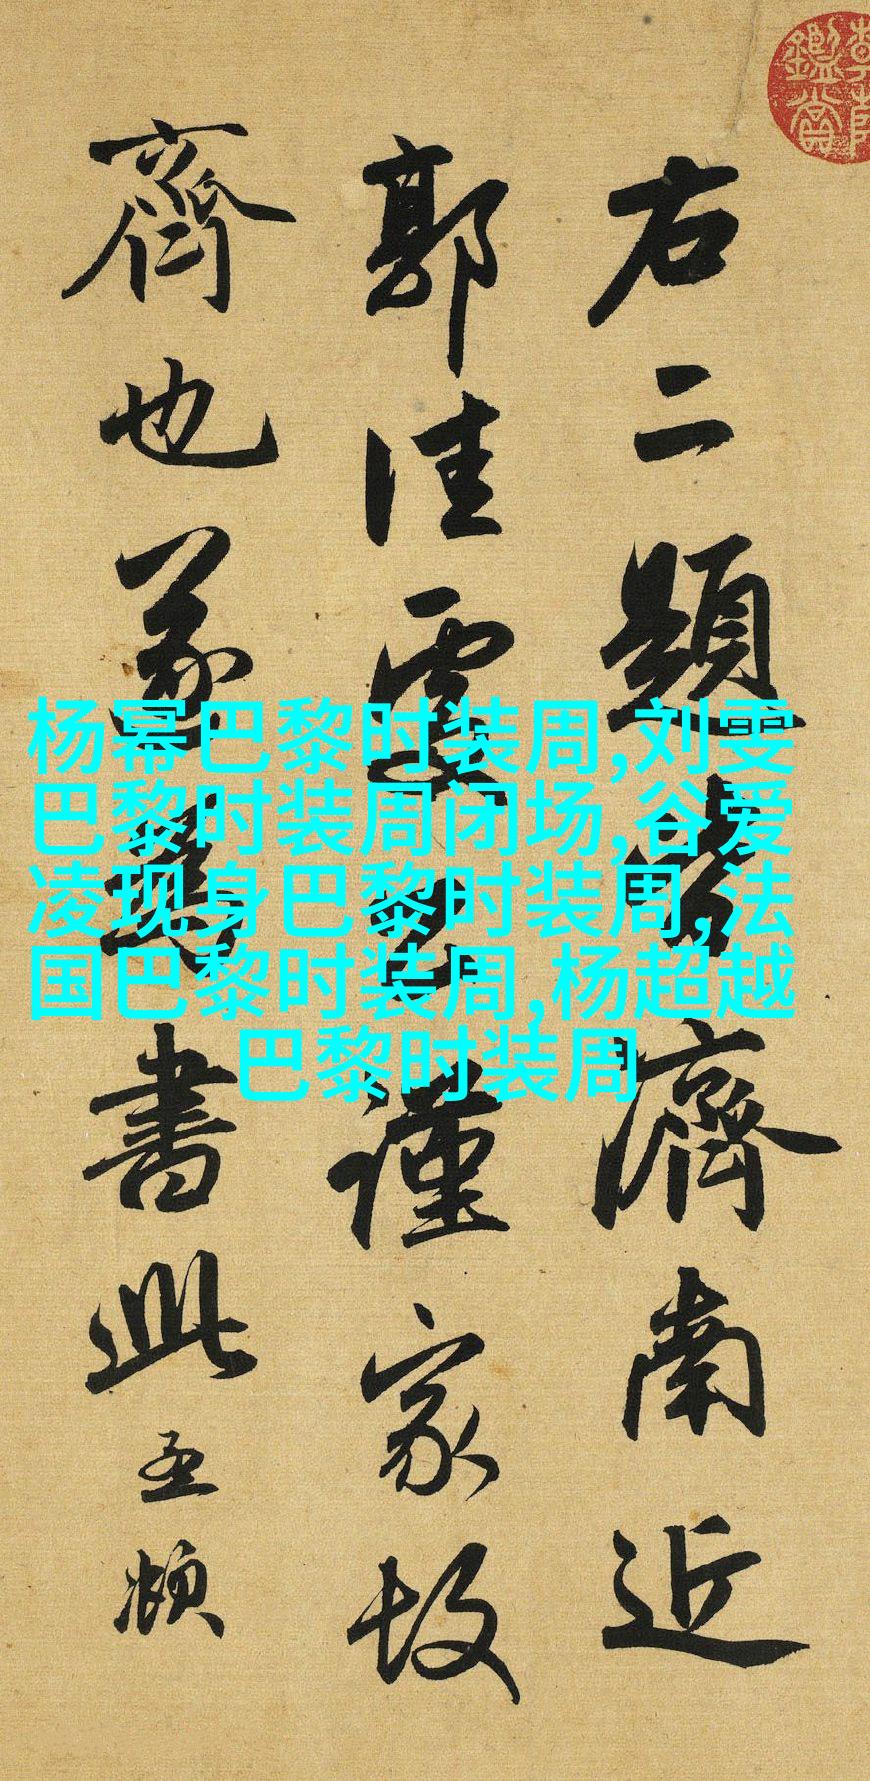 右二題皆濟南近
郭佳處公謹家故
齊也遂爲書此孟頫
杨幂巴黎时装周,刘雯
巴黎时装周闭场,谷爱
凌现身巴黎时装周,法
国巴黎时装周,杨超越
巴黎时装周
鑑賞